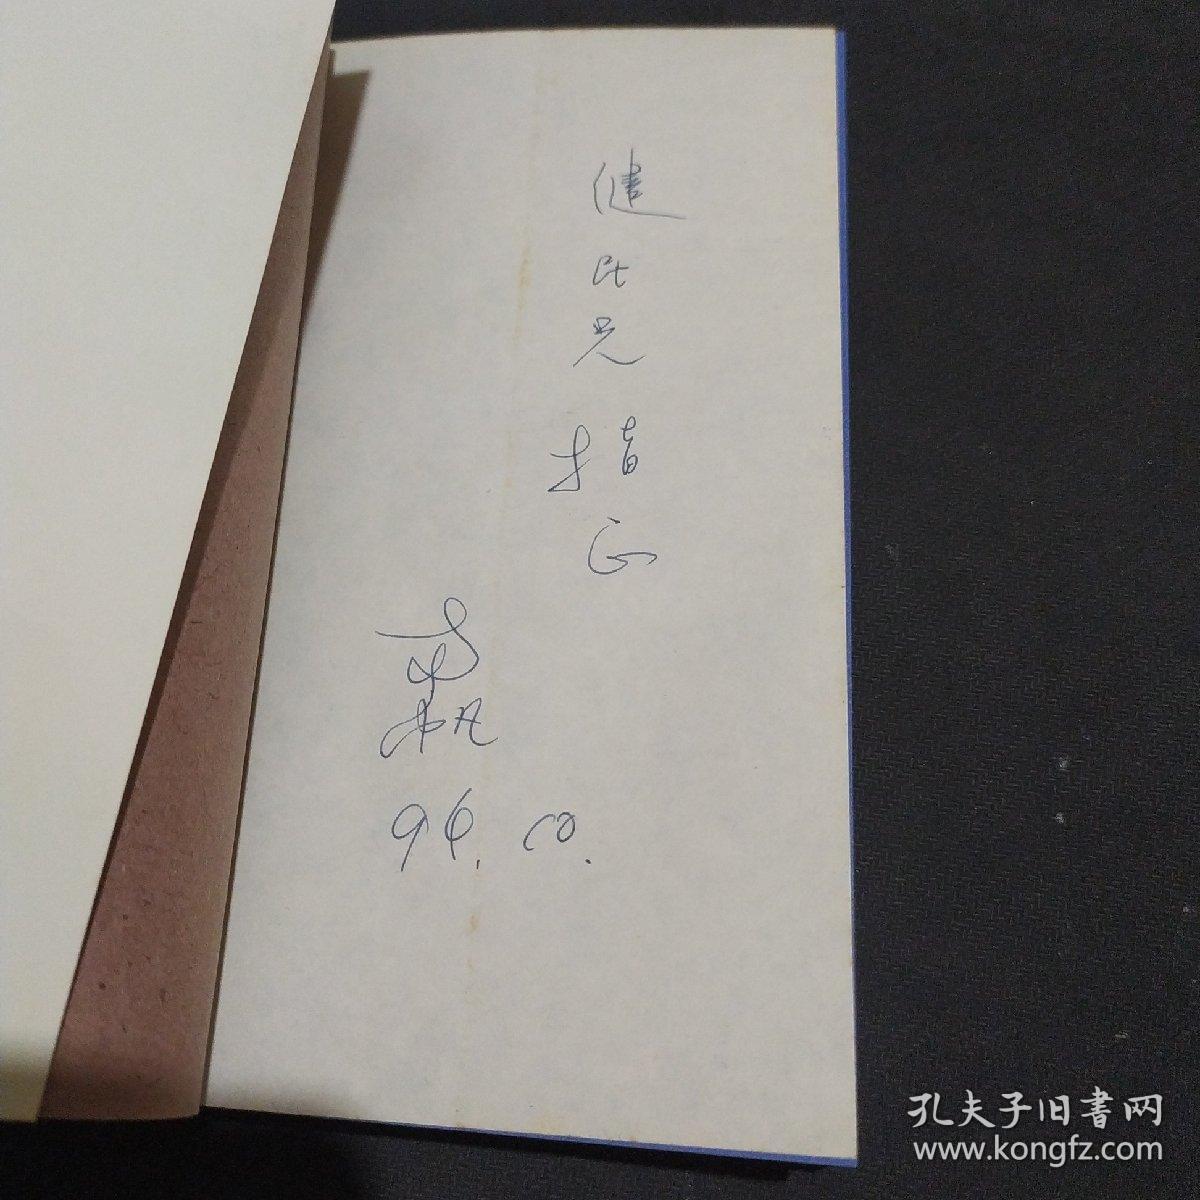 健民兄
指正
94.10.
孔夫子旧書网
www.kongfz.com